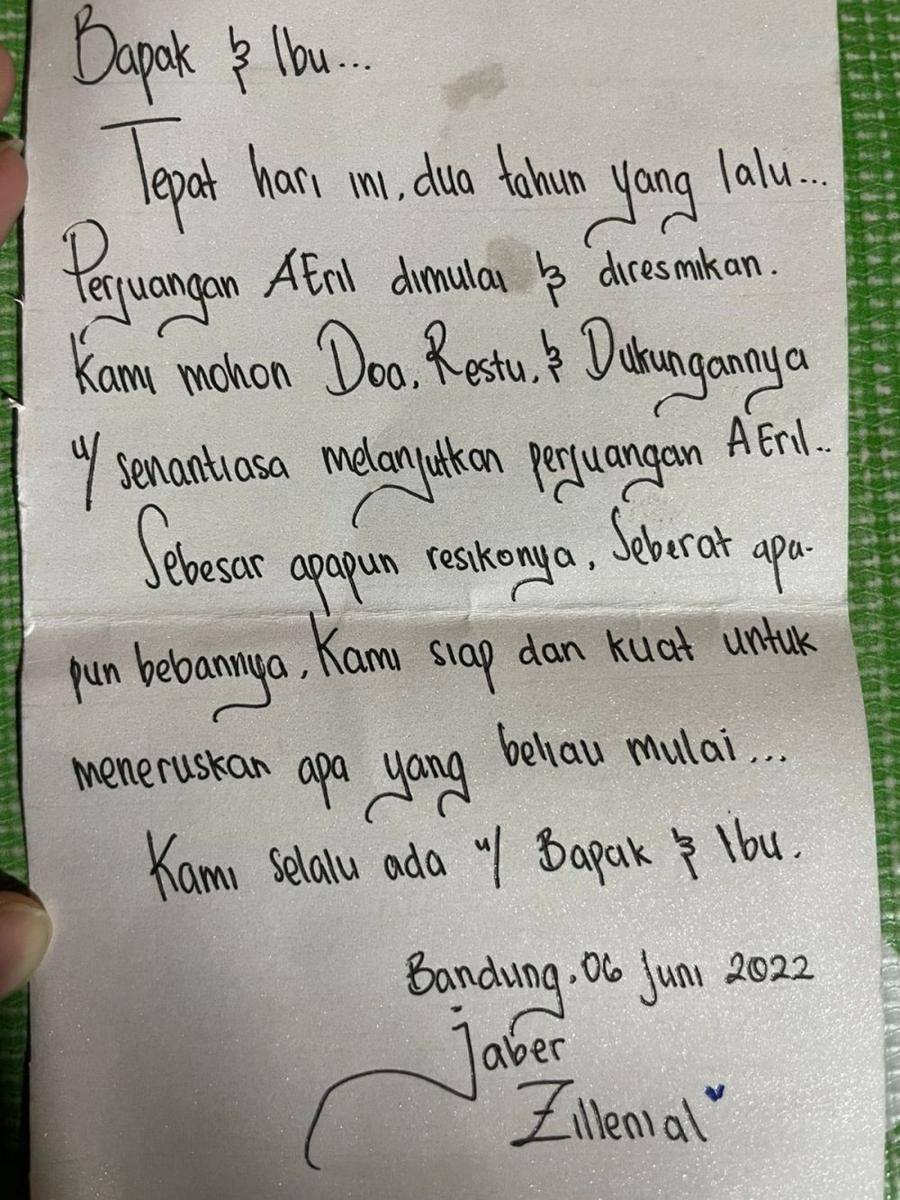 Bapak & Ibu...
Tepat hari ini, dua tahun yang lalu...
Perjuangan AEril dimulai & diresmikan.
Kami mohon Doa, Restu, & Dukungannya
u/ senantiasa melanjutkan perjuangan AEril..
Sebesar apapun resikonya, Seberat apa-
pun bebannya, Kami siap dan kuat untuk
meneruskan apa yang beliau mulai...
Kami selalu ada u/ Bapak & Ibu.
Bandung, 06 Juni 2022
Jaber
Zillenial